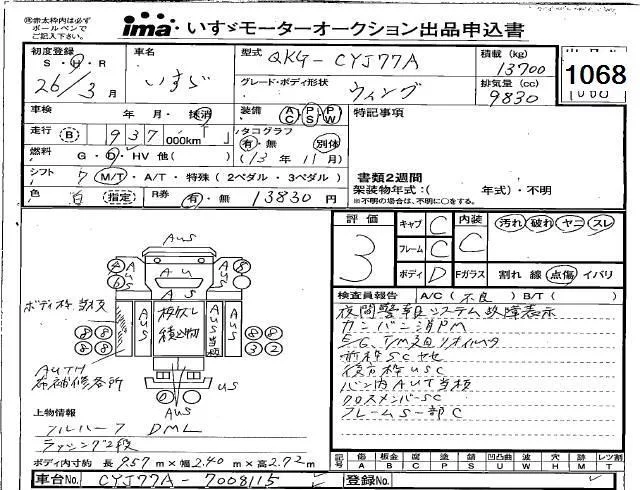 ㊟赤太枠内は必ず
ボールペンで
ご記入下さい。
ima・いすゞモーターオークション出品申込書
初度登録 S・H・R 26年3月
車名 いすゞ
型式 QKG-CYJ77A
積載 (kg) 13700
グレード・ボディ形状 ウィング
排気量 (cc) 9830
1068
車検 年・月・抹消
装備 AC PS PW
特記事項
走行 B 937 000km
タコグラフ 有・無 別体
燃料 G・D・HV 他( )
(13年11月)
シフト 7 M/T・A/T・特殊 (2ペダル・3ペダル)
書類2週間
架装物年式:( 年式)・不明
※不明の場合は、不明に○をする。
色 白 指定
R券 有・無 13830円
評価 3
キャブ C
フレーム C
ボディ D
内装 C
汚れ 破れ ヤニ スレ
Fガラス 割れ 線 点傷 イバリ
検査員報告 A/C(不良) B/T( )
夜間警報システム故障表示
カンバン消PM
E/G、T/M廻りオイルモレ
前枠SCサビ
後方枠US
バン内AUT当板
クロスメンバーSC
フレームS一部C
AUS
A U
AUS
AUS
AUS当板
積込物
US
AUS
ボディ本体当板
AUTH
上物情報
フルハーフ DML
ラッシング2段
ボディ内寸約 長957m×幅2.40m×高2.72m
記号 傷A 板金B 腐C 塗P 錆S 凹凸曲U 波W 穴H 跡M レツ割T
車台No. CYJ77A-7008115
登録No.